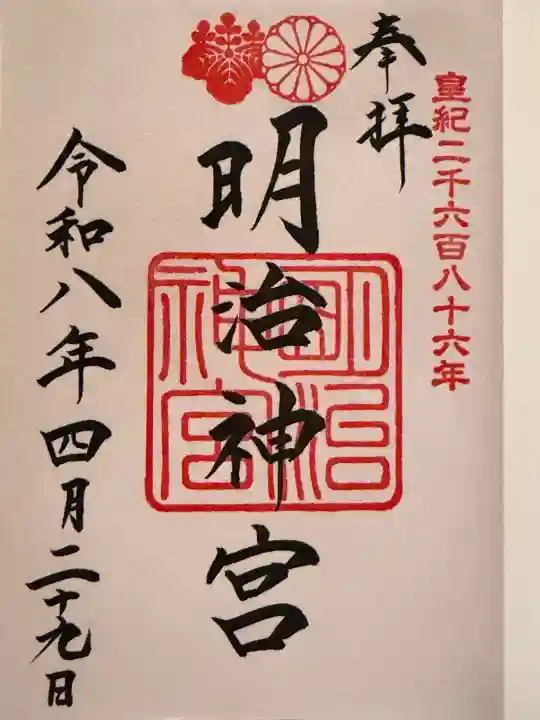 皇紀二千六百八十六年
奉拝
明治神宮
明治
神宮
令和八年四月二十九日